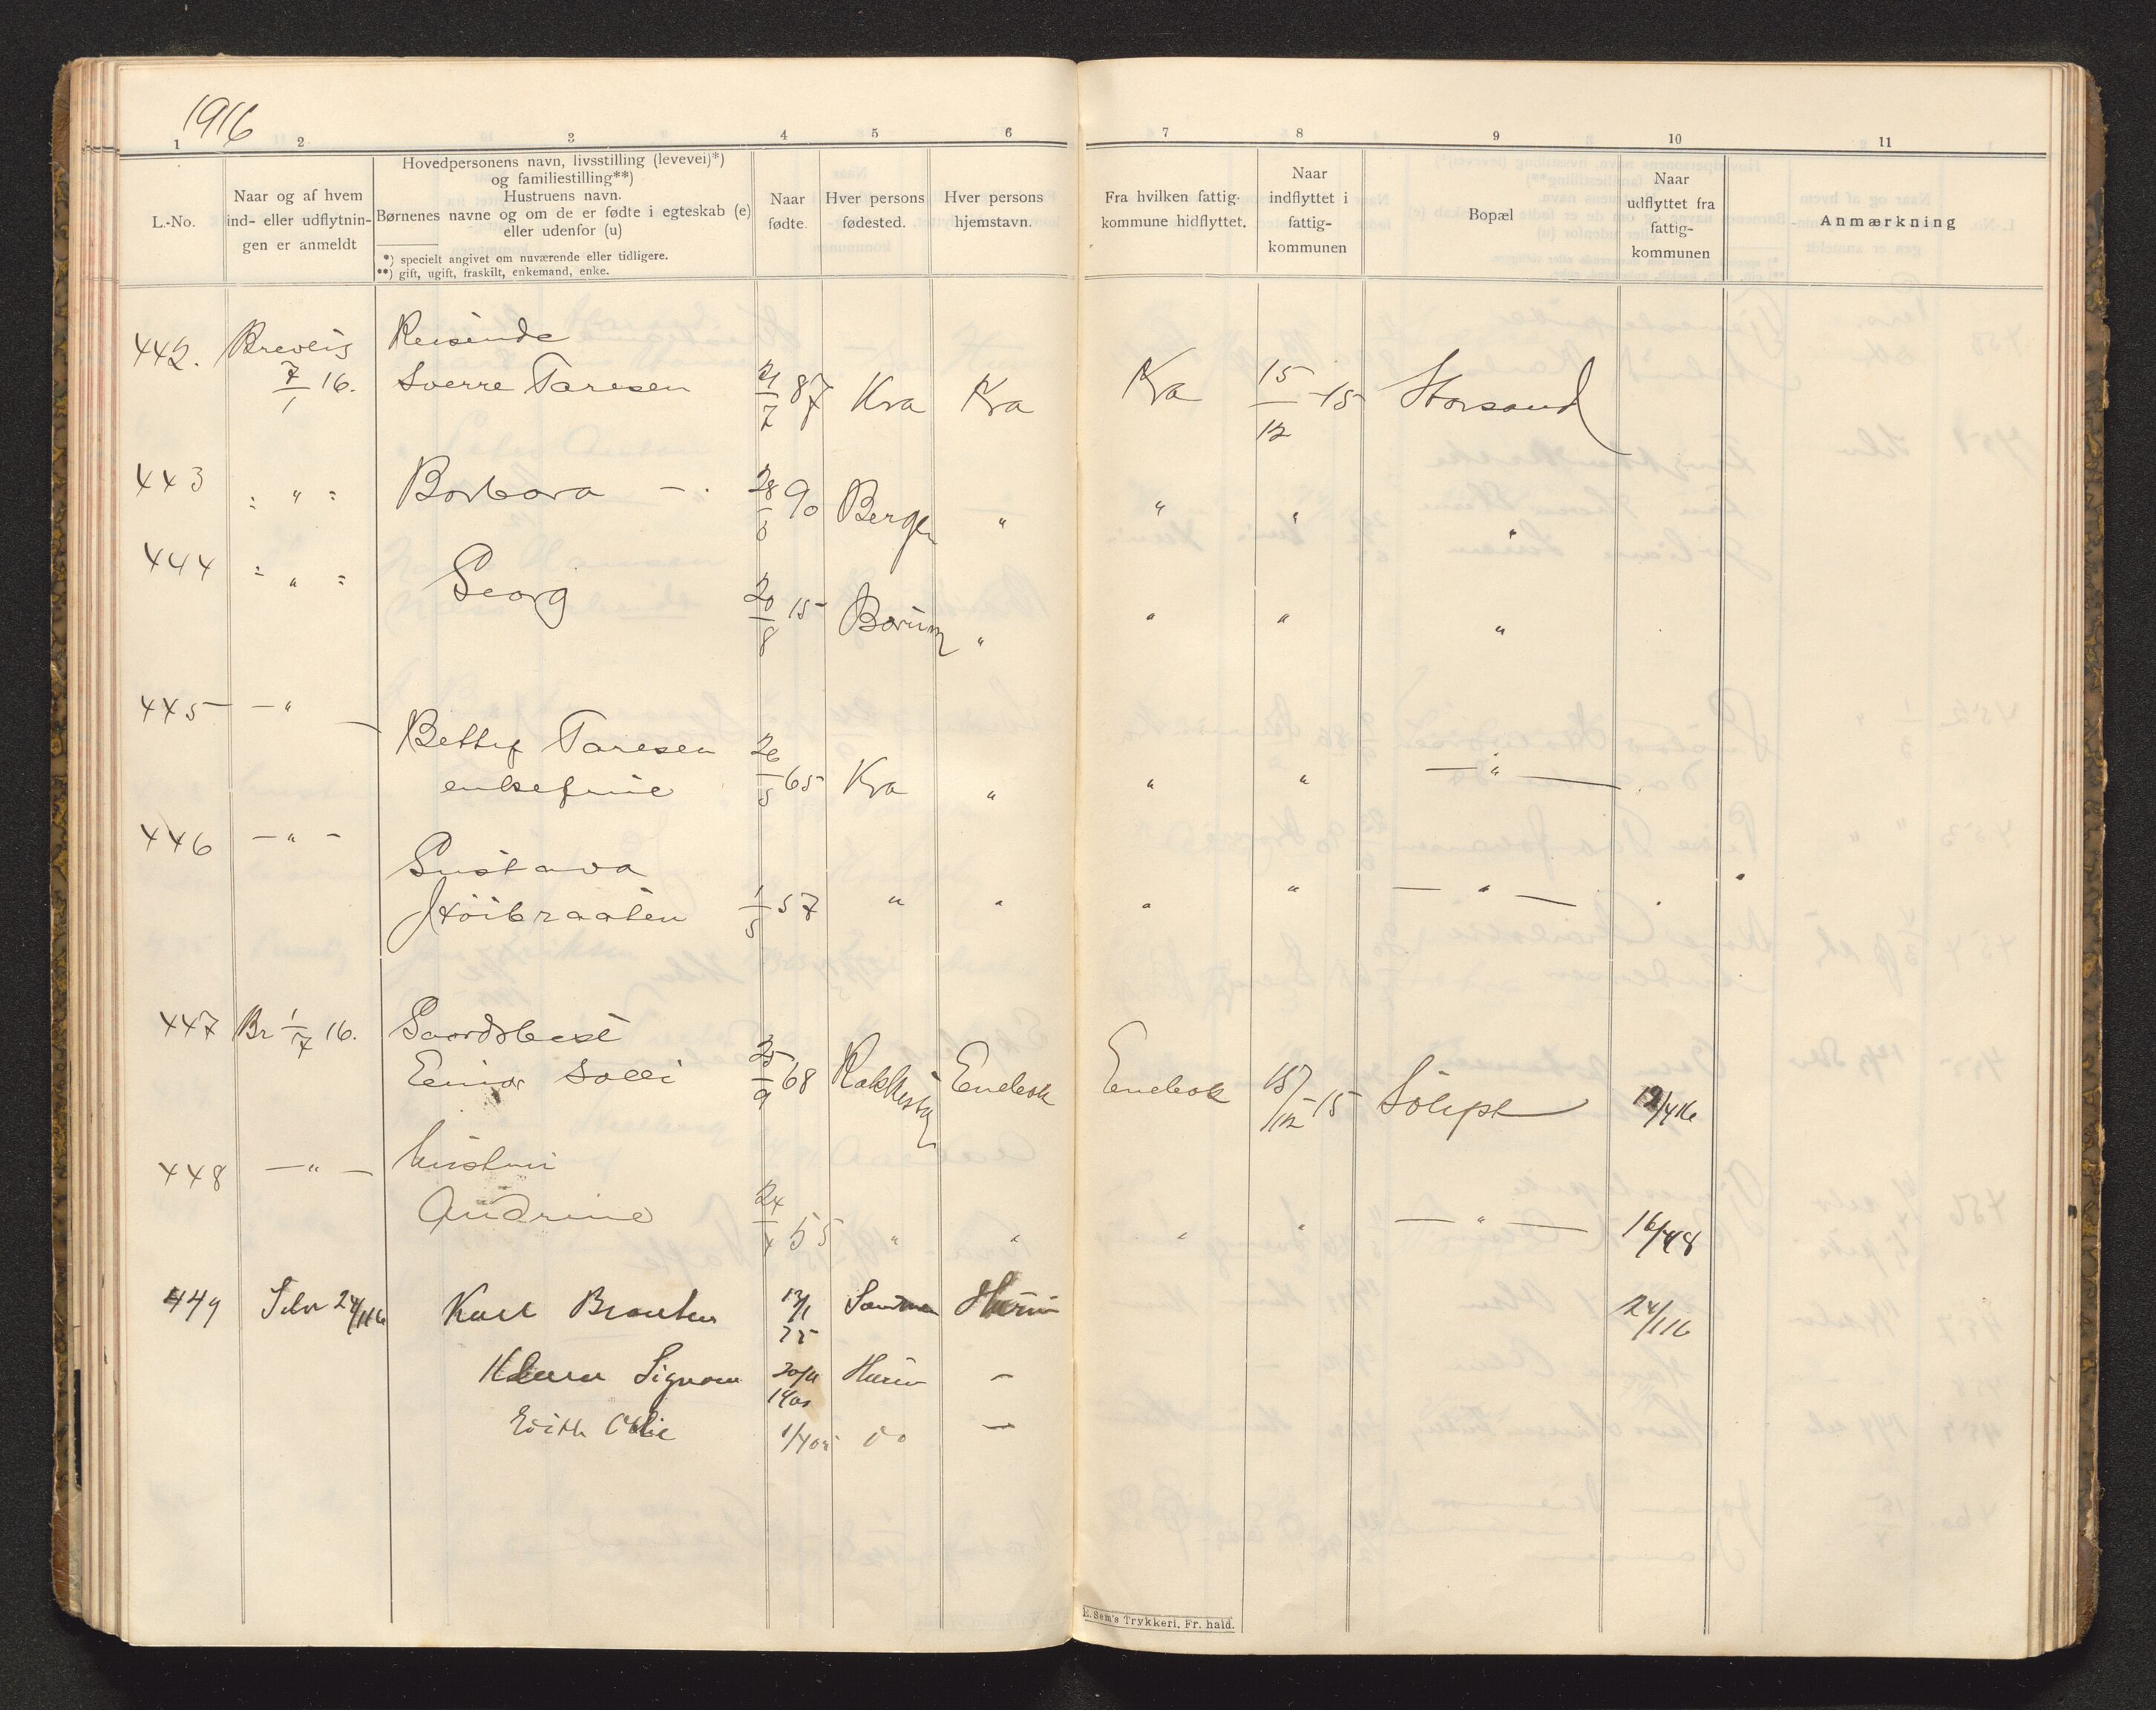 1916
1 2 3 4 5 6 7 8 9 10 11
L.-No.
Naar og af hvem
ind- eller udflytnin-
gen er anmeldt
Hovedpersonens navn, livsstilling (levevei)*)
og familiestilling**)
Hustruens navn.
Børnenes navne og om de er fødte i egteskab (e)
eller udenfor (u)
*) specielt angivet om nuværende eller tidligere.
**) gift, ugift, fraskilt, enkemand, enke.
Naar
fødte.
Hver persons
fødested.
Hver persons
hjemstavn.
Fra hvilken fattig-
kommune hidflyttet.
Naar
indflyttet i
fattig-
kommunen
Bopæl
Naar
udflyttet fra
fattig-
kommunen
Anmærkning
442. Breveis Reisende
7/1 16. Sverre Taresen 21/7 87 Kra Kra Kra 15/12 15 Storsand
443 " Borbora — 28/8 90 Bergen " " " "
444 " Georg 20/8 15 Bærum " " " "
445 — " — Betty Taresen
enkefrue 26/5 65 Kra " " " — " —
446 — " — Gustava
Støibraaten 1/5 57 " " " " — " —
447 Br 1/7 16. Gaardsbest
Einar Solli 25/9 68 Rakkestad Enebok Enebok 15/12 15 12/4 16
448 — " — hustru
Andrine 24/4 55 " " " " — " — 16/4 18
449 24/1 16 Karl Braaten 12/1 75 Hurum 24/1 16
Signora 1901 Hurum —
Edith 1/4 05 do —
E. Sem's Trykkeri, Fr. hald.